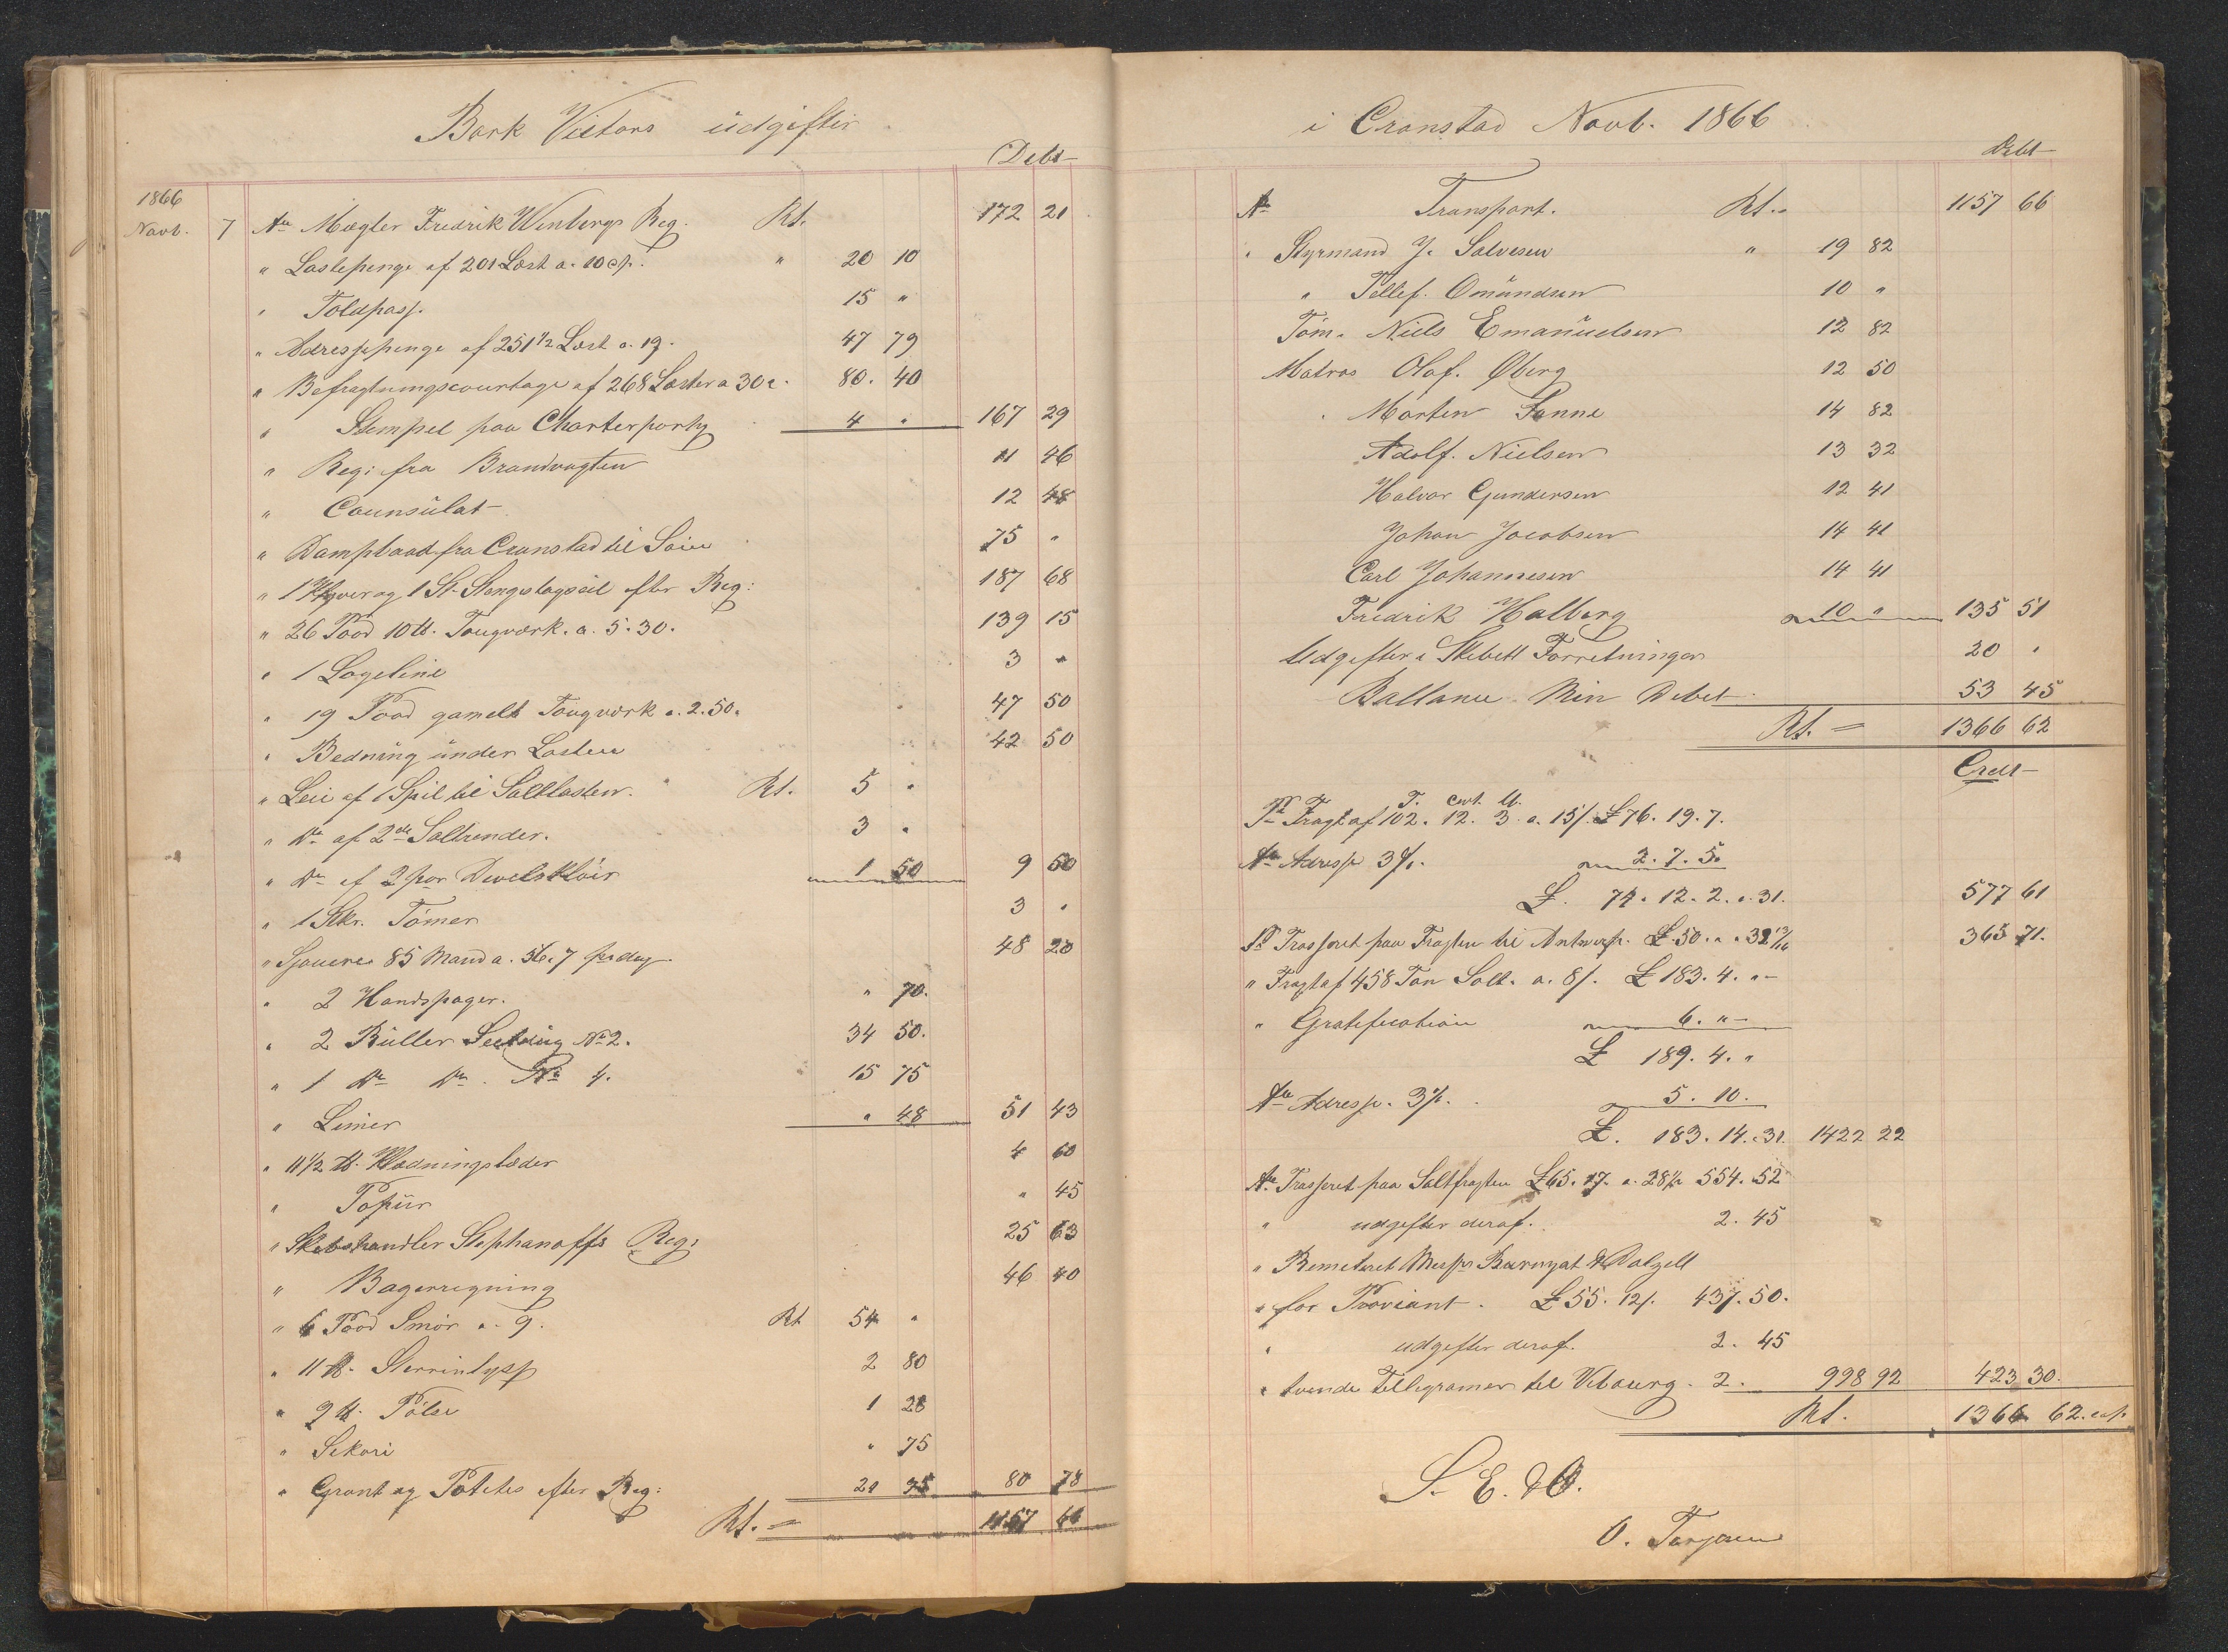 Bark Victors udgifter
Debt
1866
Novb. 7 An Mægler Fredrik Winbergs Reg. Rt. 172 21
" Lastepenge af 201 Læst a. 10 cp. " 20 10
" Toldpass. 15 "
" Adressepenge af 251 1/2 Læst a. 19. 47 79
" Befragtningscourtage af 268 Læster a 30 c. 80. 40
" Stempel paa Charterparty 4 " 167 29
" Reg: fra Brandvagten 11 46
" Counsulat 12 48
" Dampbaad fra Cronstad til 75 "
" 1 Klyver og 1 St. Stengestagseil efter Reg: 187 68
" 26 Pood 10 tt. Tougværk. a. 5.30. 139 15
" 1 Logeline 3 "
" 19 Pood gamelt Tougværk a. 2.50. 47 50
" Bedning under Lasten 42 50
" Leie af 1 Spil til Saltlasten. Rt. 5 "
" Do af 2de Saltrender. 3 "
" Do af 2 par 1 50 9 50
" 1 Stkr. Tømer 3 "
" Sjouere 85 Mand a. 56.7 pr dag 48 20
" 2 Handspager. " 70.
" 2 Buller Seelduig No 2. 34 50.
" 1 Do Do. No 4. 15 75
" Limer " 48 51 43
" 11 1/2 tt. Klædningslæder 4 60
" Papiir " 45
" Skibshandler Stephanoffs Reg: 25 63
" Bagerregning 46 40
" 6 Pood Smør a. 9. Rt 54 "
" 11 tt. Sterrinlyss 2 80
" 9 tt. Pølse 1 28
" Sekori " 75
" Grønt og Potetes efter Reg: 21 95 80 78
Rt. = 1157 66
i Cronstad Novb. 1866
Debt
An Transport. Rt. " 1157 66
" Styrmand J. Salvesen " 19 82
" Tellef. Omundsen 10 "
Tøm. Niels Emanuelsen 12 82
Matros Olaf. Øberg 12 50
" Morten Sanne 14 82
Adolf. Nielsen 13 32
Halvor Gundersen 12 41
Johan Jacobsen 14 41
Carl Johannesen 14 41
Fredrik Halberg 10 " 135 51
Udgifter i Skibett Forretninger 20 "
Ballance Min Debet 53 45
Rt. = 1366 62
Credt
T. cwt. tt.
Pr Fragt af 102. 12. 3. a. 15/. £ 76. 19. 7.
An Adresse 3%. 2. 7. 5.
£. 74. 12. 2. a. 31. 577 61
Pr Trasseret paa Fragten til Antwerp. £. 50. " a 32 13/16 365 71.
" Fragt af 458 Ton Salt. a. 8/. £ 183. 4. "
" Gratification 6. "
£ 189. 4. "
An Adresse. 3%. 5. 10.
£. 183. 14. a 31. 1422 22
An Trasseret paa Saltfragten £ 65. 17. a. 28 1/2 554. 52
" udgifter deraf. 2. 45
" Remeteret Messrs & Dalzell
" for Proviant. £ 55. 12/. 437. 50.
" udgifter deraf. 2. 45
" tvende Tellegramer til Vibourg. 2. 998 92 423 30.
Rt. 1366 62. cop.
S. E. & O.
O. Terjesen